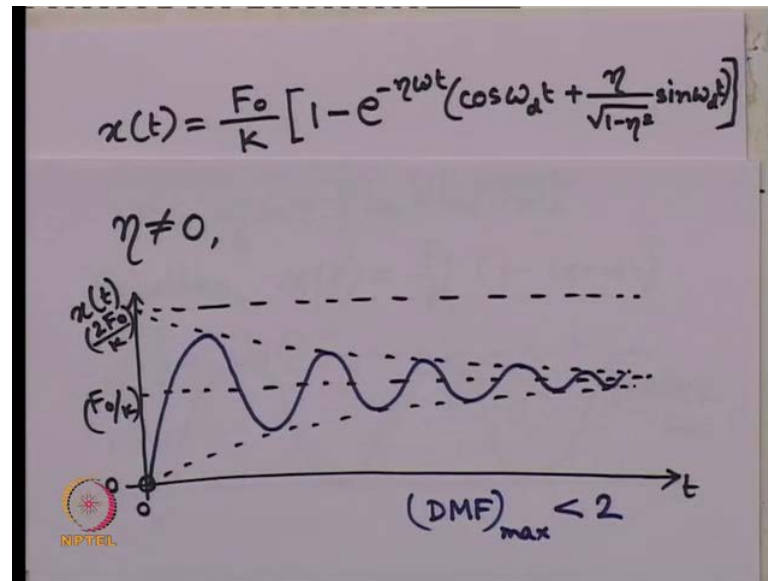 x(t) = F₀/K [1 - e^{-ηωt} (cosω_d t + η/√(1-η²) sinω_d t)]
η ≠ 0,
x(t)
(2F₀/K)
(F₀/K)
0
0
t
(DMF)_max < 2
NPTEL